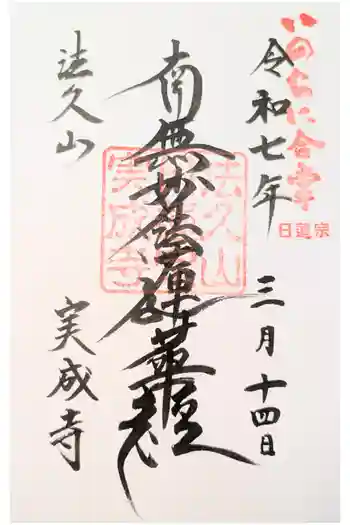 いのちに合掌
日蓮宗
令和七年 三月十四日
南無妙法蓮華経
法久山
実成寺
法久山
実成寺